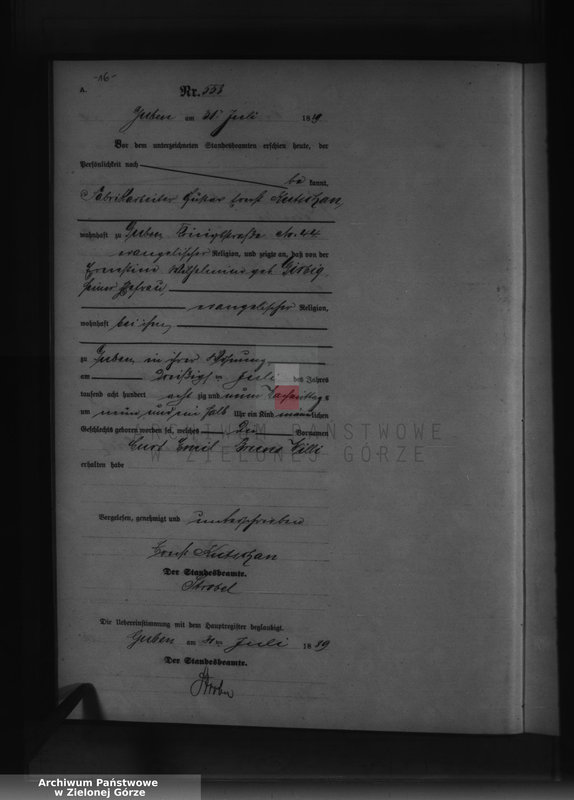 -16-
A.
Nr. 553
Guben am 31 Juli 1889
Vor dem unterzeichneten Standesbeamten erschien heute, der
Persönlichkeit nach
be kannt,
Fabrikarbeiter Ernst
wohnhaft zu Guben No. 44
evangelischer Religion, und zeigte an, daß von der
Ernestine Wilhelmine geb. Girbig
seiner Ehefrau
evangelischer Religion,
wohnhaft bei ihm
zu Guben in ihrer Wohnung
am Dreißigsten Juli des Jahres
tausend acht hundert acht zig und neun Nachmittags
um neun und ein halb Uhr ein Kind männlichen
Geschlechts geboren worden sei, welches Vornamen
Curt Emil Bruno Willi
erhalten habe
Vorgelesen, genehmigt und unterschrieben
Ernst
Der Standesbeamte.
Strobel
Die Uebereinstimmung mit dem Hauptregister beglaubigt.
Guben am 31 ten Juli 1889
Der Standesbeamte.
ARCHIWUM PAŃSTWOWE
W ZIELONEJ GÓRZE
Archiwum Państwowe
w Zielonej Górze